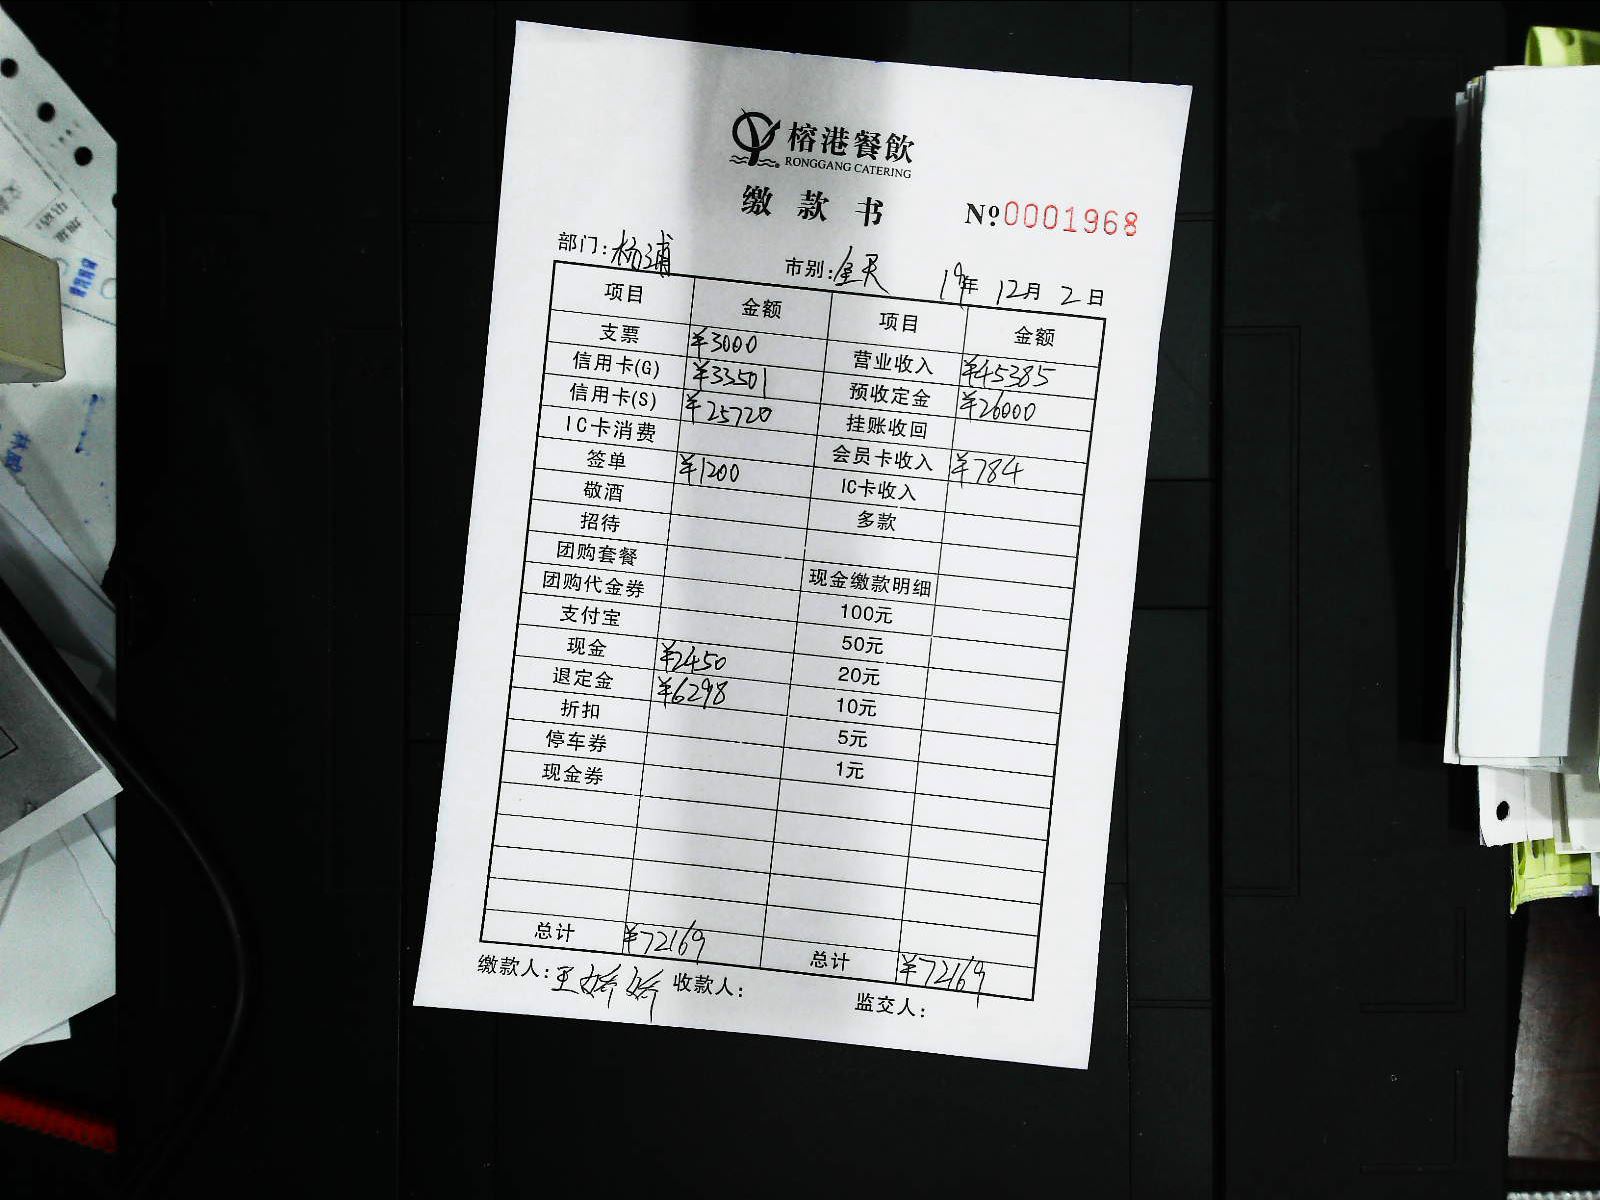 榕港餐飲
RONGGANG CATERING
缴款书
№0001968
部门:杨浦 市别:全天 19年 12月 2日
项目 金额 项目 金额
支票 ¥3000 营业收入 ¥45385
信用卡(G) ¥33501 预收定金 ¥26000
信用卡(S) ¥25720 挂账收回
IC卡消费 会员卡收入 ¥784
签单 ¥1200 IC卡收入
敬酒 多款
招待
团购套餐 现金缴款明细
团购代金券 100元
支付宝 50元
现金 ¥2450 20元
退定金 ¥6298 10元
折扣 5元
停车券 1元
现金券
总计 ¥72169 总计 ¥72169
缴款人:王娇娇 收款人: 监交人: